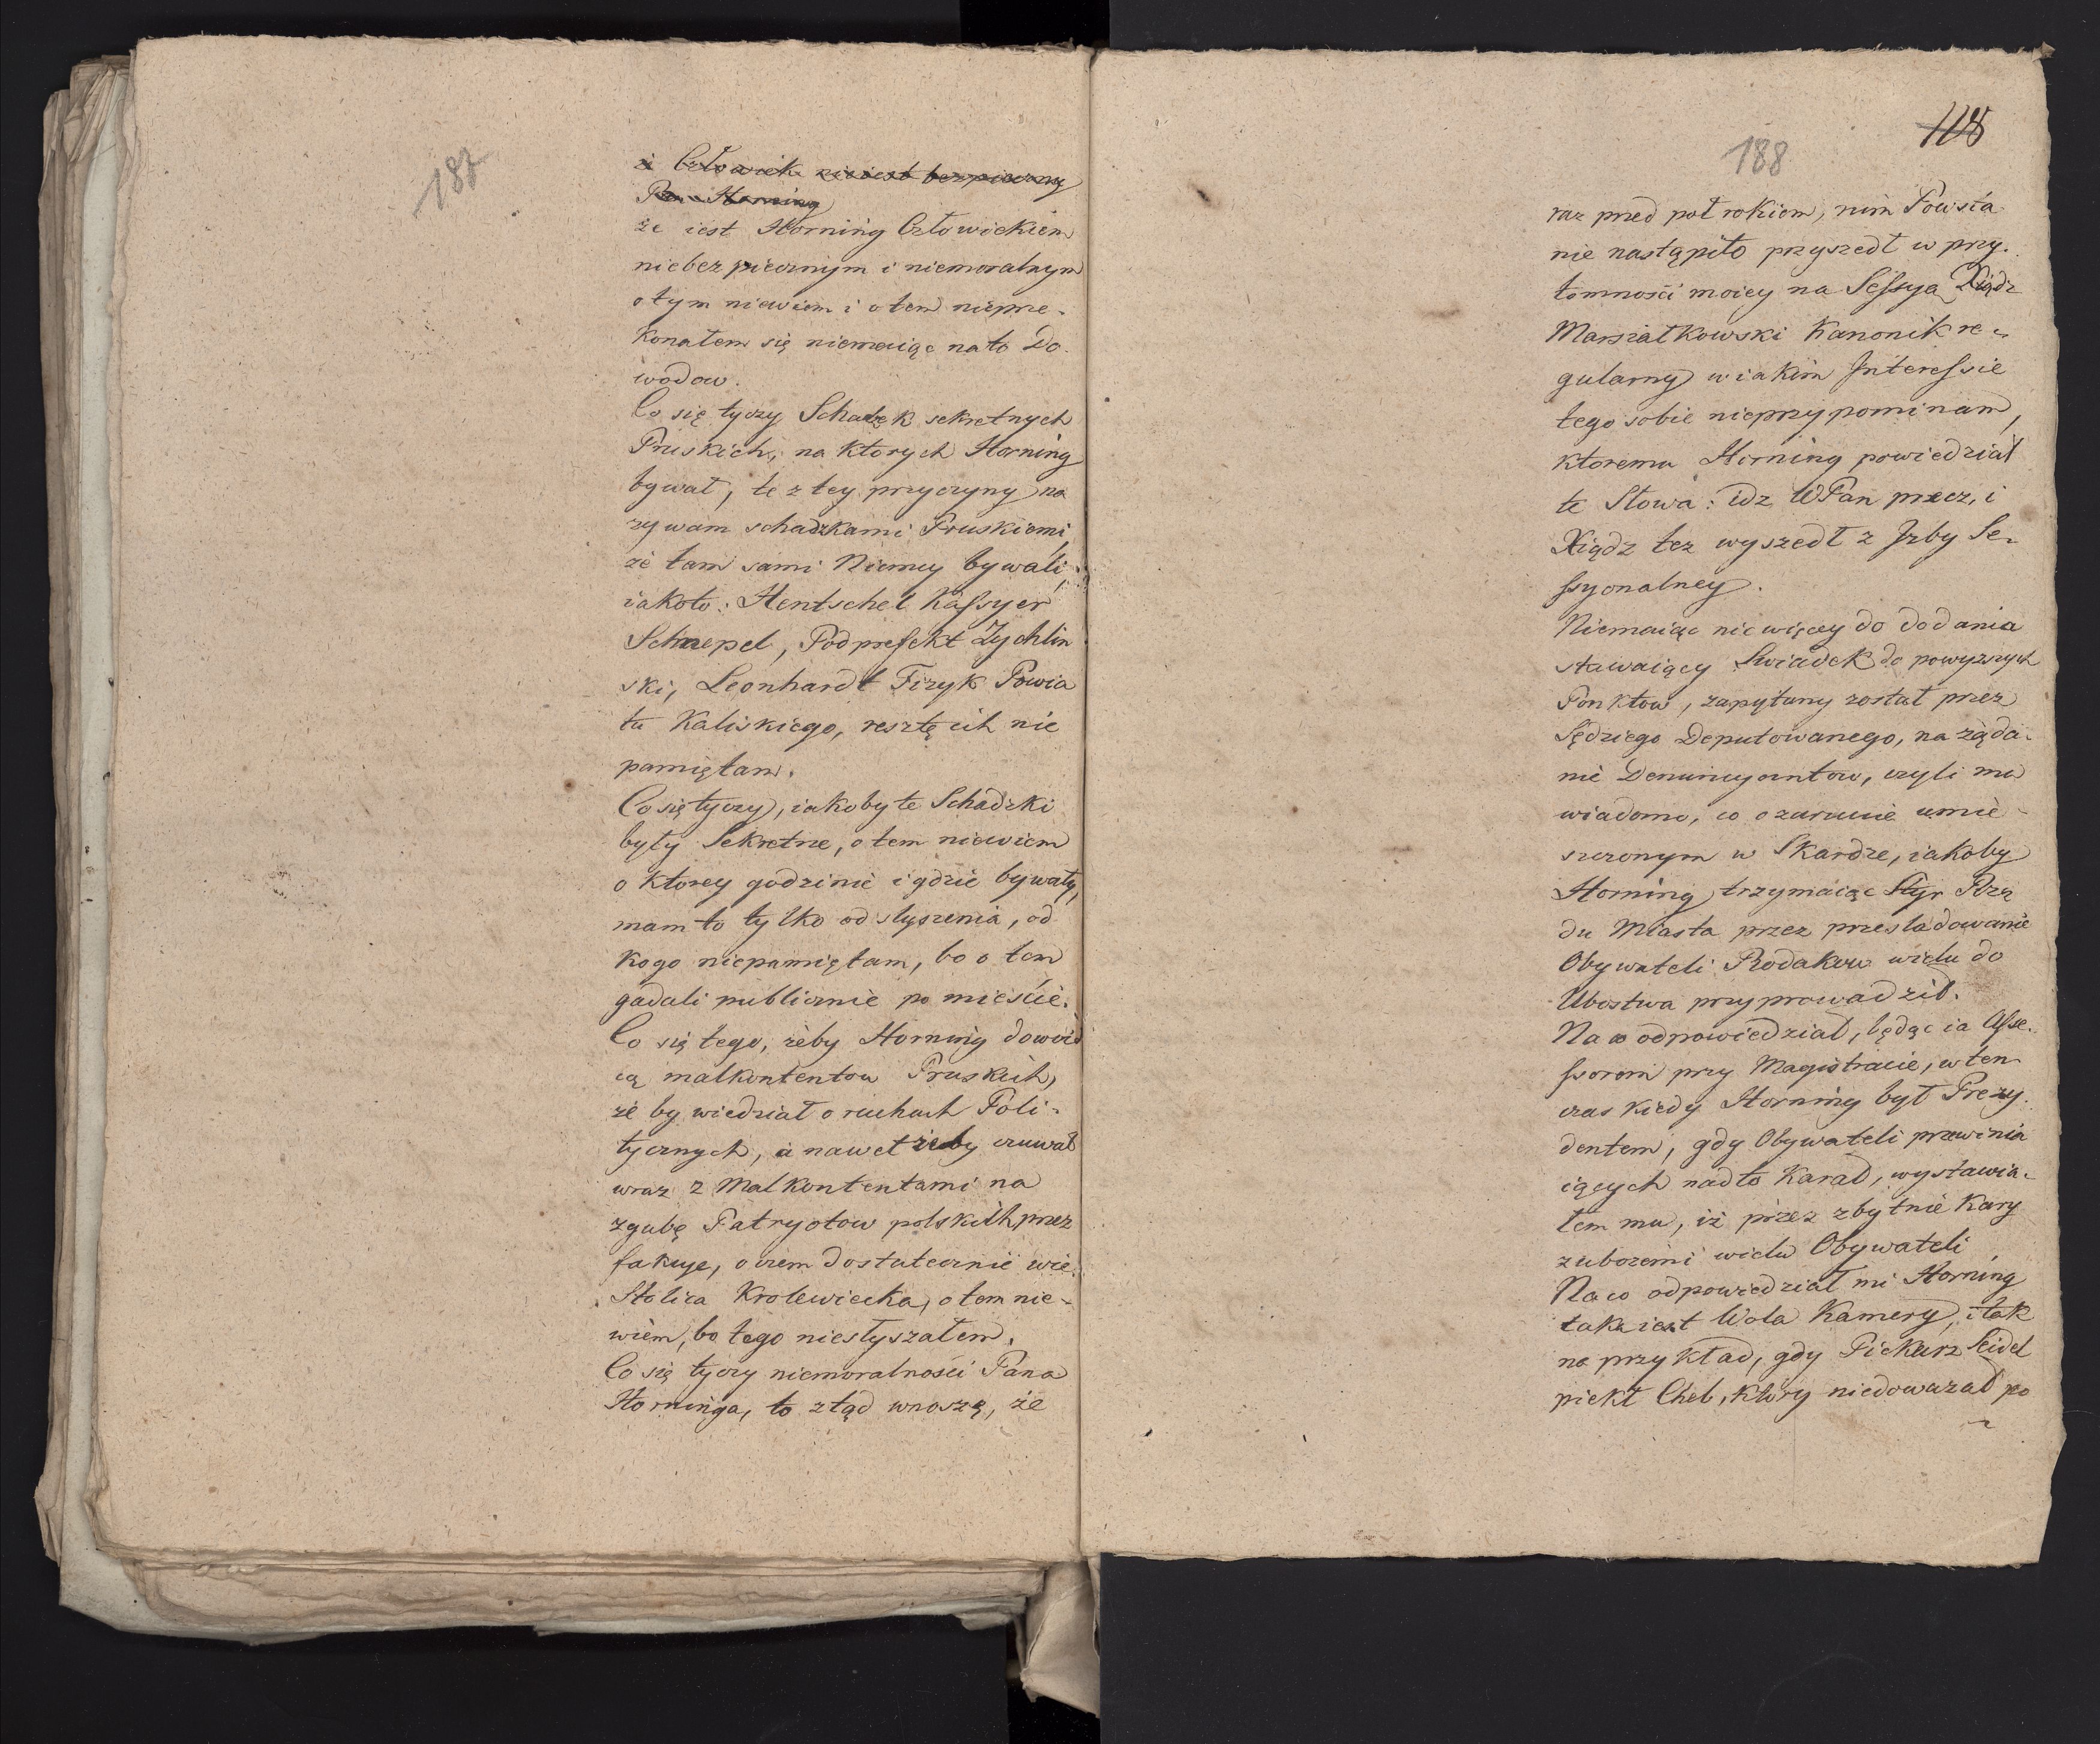 187
i Człowiek nieiest bezpieczny
Pan Horning
że iest Horning Człowiekiem
niebezpiecznym i niemoralnym
o tym niewiem i o tem nieprze-
konałem się niemaiąc na to Do-
wodow.
Co się tyczy Schadzek sekretnych
Pruskich, na ktorych Horning
bywał, te z tey przyczyny na
zywam schadzkami Pruskiemi,
że tam sami Niemcy bywali,
iakoto: Hentschel Kassyer
Schnepel, Podprefekt Zychlin
ski, Leonhardt Fizyk Powia
tu Kaliskiego, resztę ich nie
pamiętam.
Co się tyczy, iakoby te Schadzki
były Sekretne, o tem niewiem
o ktorey godzinie i gdzie bywały,
mam to tylko od słyszenia, od
kogo niepamiętam, bo o tem
gadali publicznie po mieście.
Co się tego, żeby Horning dowod
cą malkontentow Pruskich,
że by wiedział o ruchach Poli-
tycznych, a nawet żeby czuwał
wraz z Malkontentami na
zgubę Patryotow polskich przez
fakcye, o czem dostatecznie wie
Stolica Krolewiecka, o tem nie-
wiem, bo tego niesłyszałem.
Co się tyczy niemoralności Pana
Horninga, to ztąd wnoszę, że
118
188
raz przed pół rokiem, nim Powsta
nie nastąpiło przyszedł w przy-
tomności moiey na Sessyą Xiądz
Marszałkowski Kanonik re-
gularny w iakim Interessie
tego sobie nieprzypominam,
ktoremu Horning powiedział
te Słowa: idz WPan precz, i
Xiądz tez wyszedł z Izby Se-
ssyonalney.
Niemaiąc nic więcey do dodania
stawaiący Swiadek do powyzszych
Ponktow, zapytany został przez
Sędziego Deputowanego, na żąda-
nie Denuncyantow, czyli ma
wiadomo, co o zarzucie umie-
szczonym w Skardze, iakoby
Horning trzymaiąc Styr Rzą
du Miasta przez przesladowanie
Obywateli Rodakow wielu do
Ubostwa przyprowadził.
Na co odpowiedział, będąc ia Asse-
ssorem przy Magistracie, w ten
czas kiedy Horning był Prezy
dentem, gdy Obywateli przewinia
iących nadto Karał, wystawia-
łem mu, iż przez zbytnie Kary
zubozemi wielu Obywateli,
Na co odpowiedział mi Horning
tak iest Wola Kamery, i tak
na przykład, gdy Piekarz Seidel
piekł Chleb, ktory niedowazał po